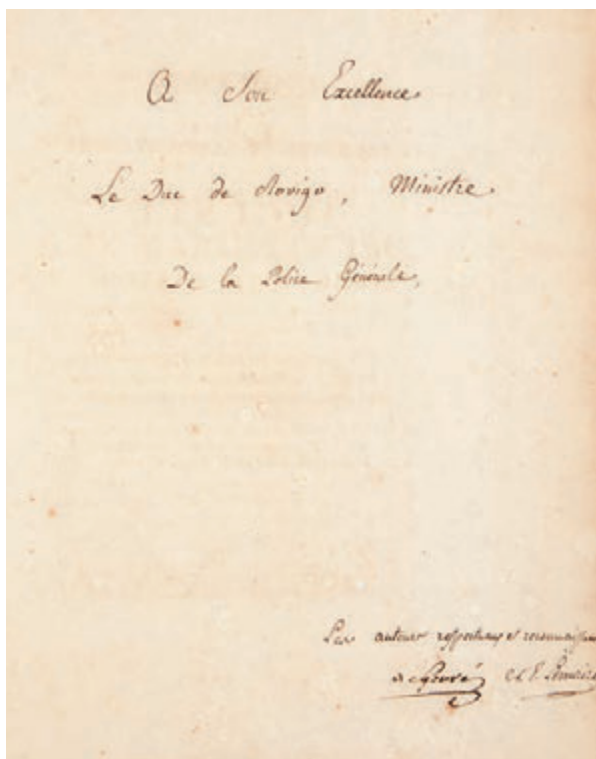 A Son Excellence
Le Duc de Rovigo, Ministre
De la Police Générale,
Les auteurs respectueux et reconnaissans